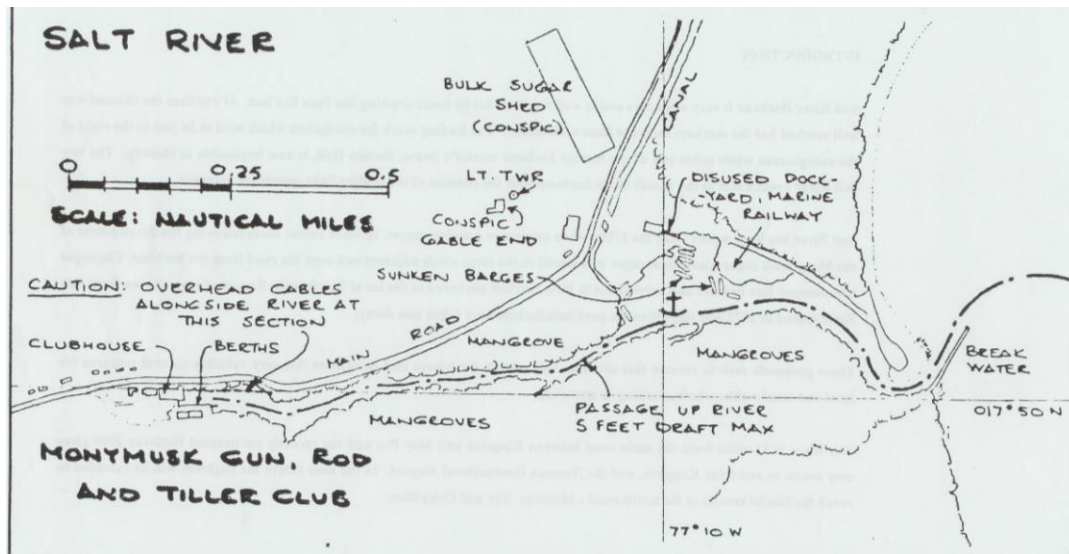 SALT RIVER
BULK SUGAR
SHED
(CONSPIC)
CANAL
0 0.25 0.5
SCALE: NAUTICAL MILES
LT. TWR
CONSPIC
GABLE END
DISUSED DOCK-
YARD, MARINE
RAILWAY
SUNKEN BARGES
CAUTION: OVERHEAD CABLES
ALONGSIDE RIVER AT
THIS SECTION
CLUBHOUSE
BERTHS
MAIN ROAD
MANGROVE
MANGROVES
BREAK
WATER
MANGROVES
PASSAGE UP RIVER
5 FEET DRAFT MAX
017° 50 N
MONYMUSK GUN, ROD
AND TILLER CLUB
77° 10 W